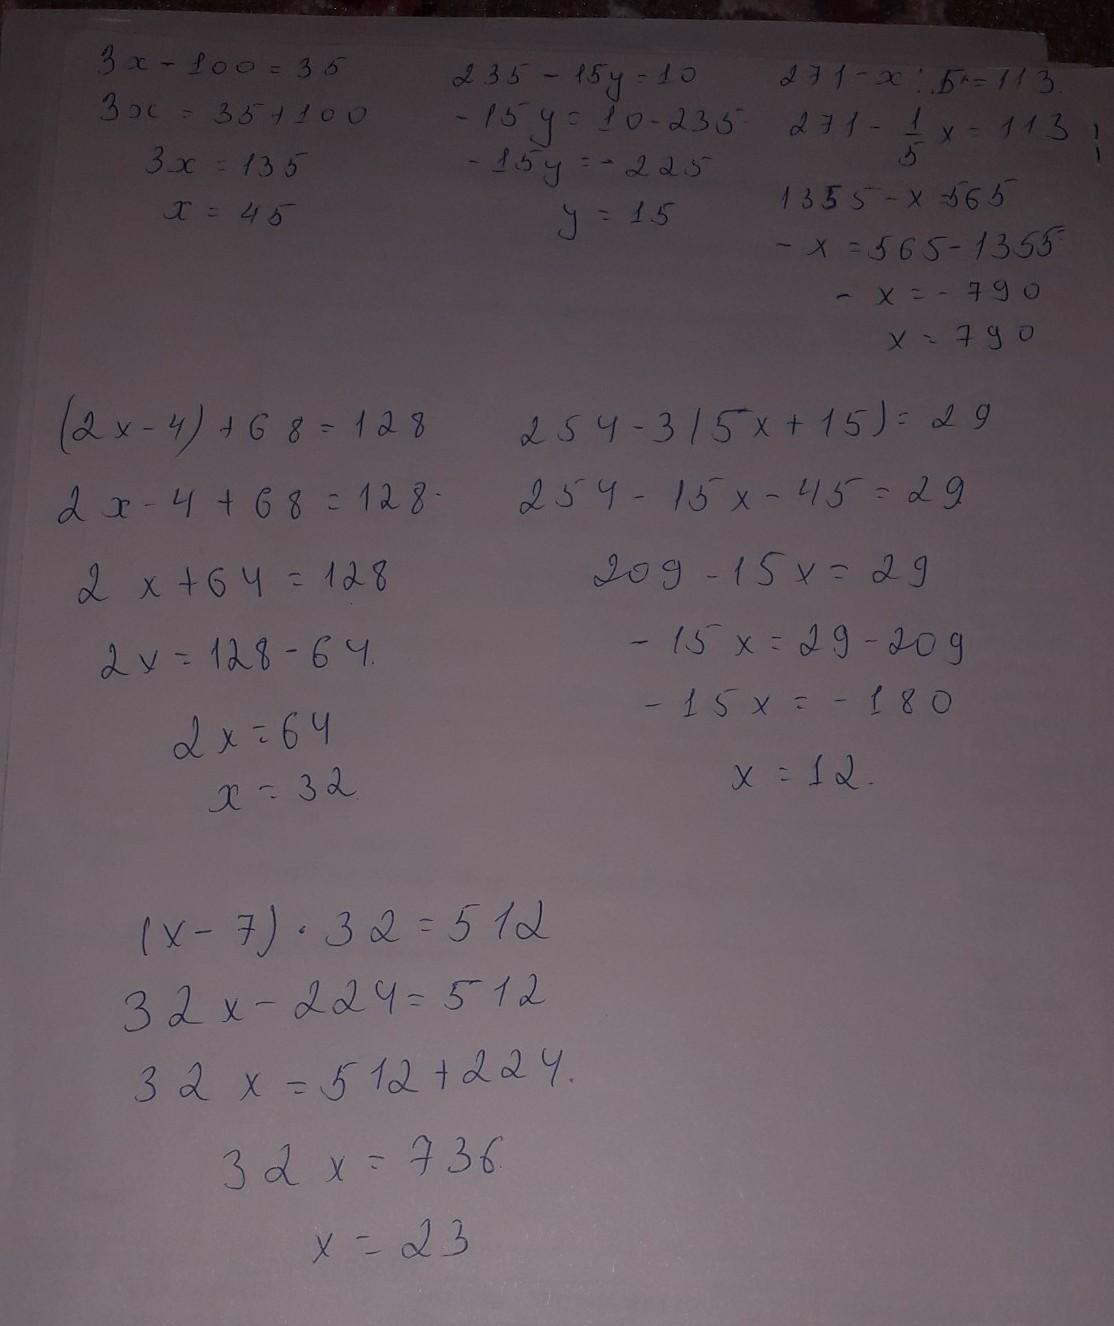 3x - 100 = 35
3x = 35 + 100
3x = 135
x = 45
235 - 15y = 10
- 15y = 10 - 235
- 15y = - 225
y = 15
271 - x : 5 = 113.
271 - 1/5 x = 113
1355 - x = 565
- x = 565 - 1355
- x = - 790
x = 790
(2x - 4) + 68 = 128
2x - 4 + 68 = 128
2x + 64 = 128
2x = 128 - 64.
2x = 64
x = 32
254 - 3(5x + 15) = 29
254 - 15x - 45 = 29
209 - 15x = 29
- 15x = 29 - 209
- 15x = - 180
x = 12.
(x - 7) · 32 = 512
32x - 224 = 512
32x = 512 + 224.
32x = 736
x = 23